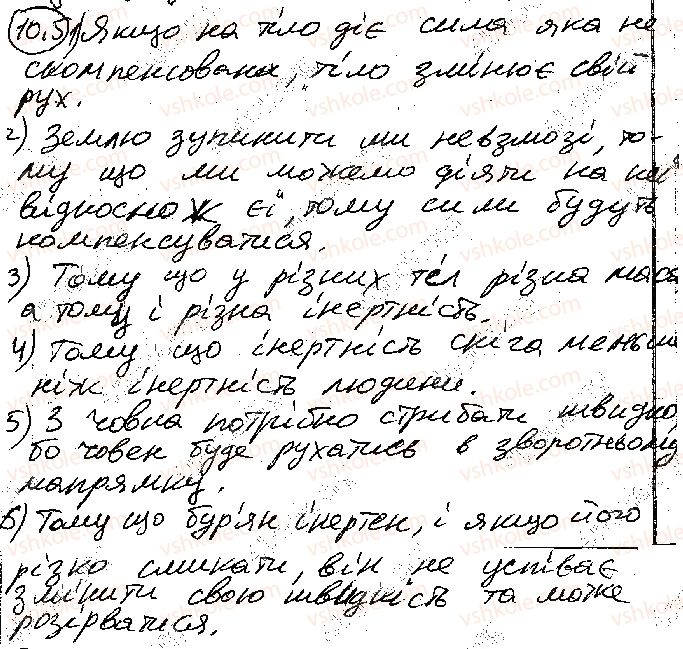 10.5 1) Якщо на тіло діє сила яка не
скомпенсована, тіло змінює свій
рух.
2) Землю зупинити ми невзмозі, то-
му що ми можемо діяти на неї
відносно ж єї, тому сили будуть
компенсуватися.
3) Тому що у різних тіл різна маса
а тому і різна інертність.
4) Тому що інертність сніга меньш
ніж інертність людини.
5) З човна потрібно стрибати швидко,
бо човен буде рухатись в зворотньому
напрямку.
6) Тому що бур'ян інертен, і якщо його
різко смикати, він не успіває
змінити свою швидкість та може
розірватися.